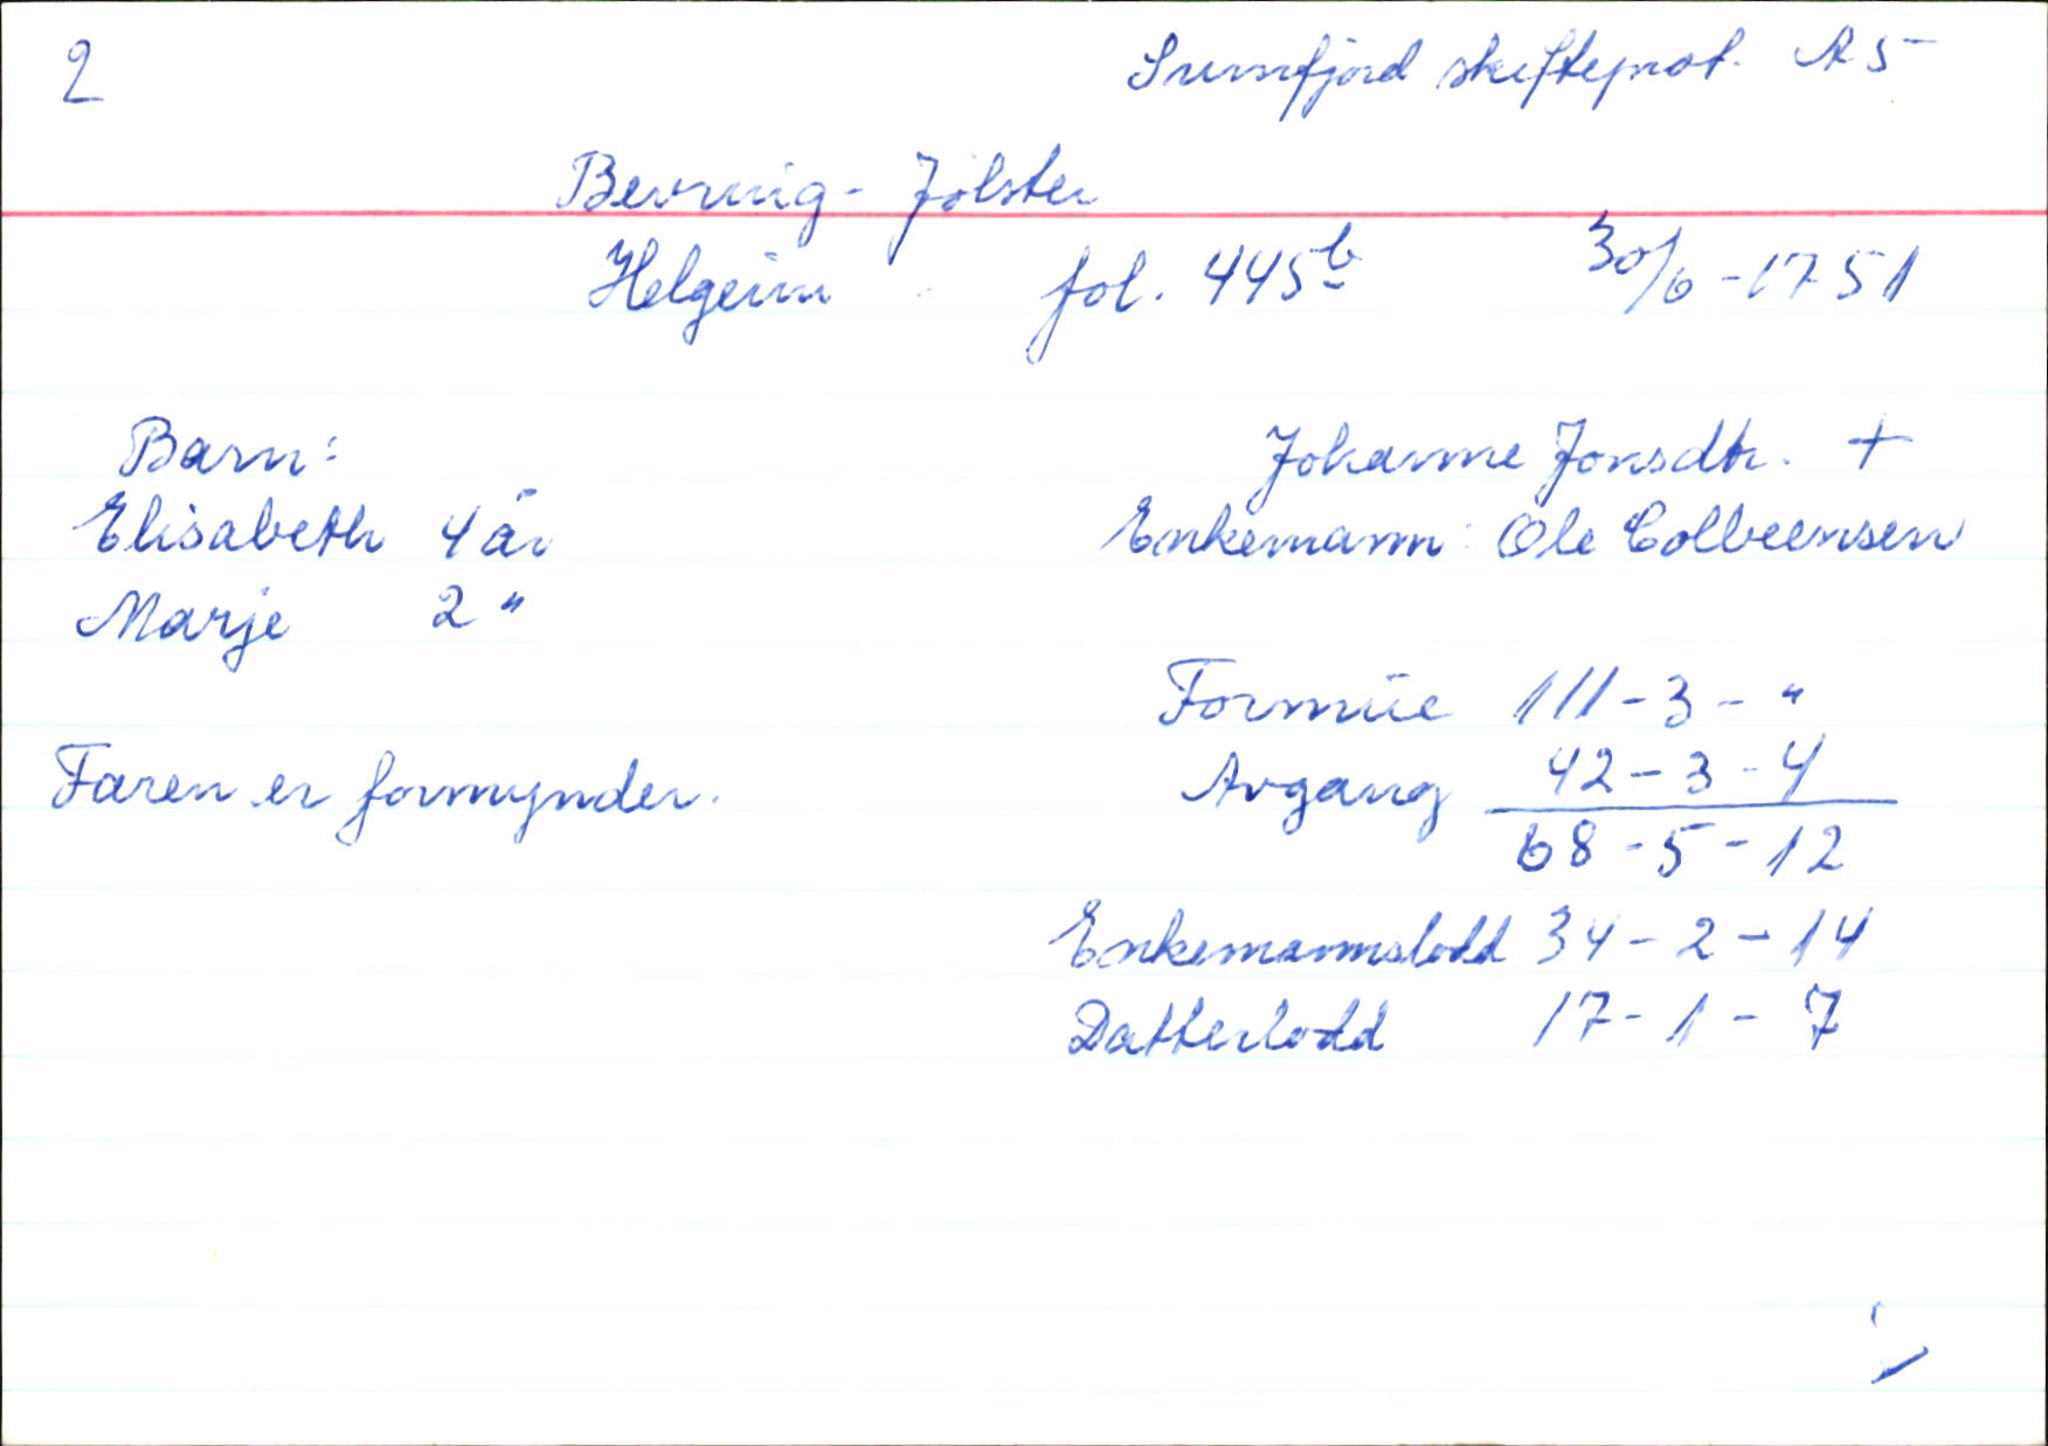 2
Sunnfjord skifteprot. A 5
Bevring - Jølster
Helgeim fol. 445b 30/6 - 1751
Barn:
Elisabeth 4 år
Marje 2 "
Faren er formynder.
Johanne Jonsdtr. +
Enkemann: Ole Colbeensen
Formúe 111 - 3 - "
Avgang 42 - 3 - 4
68 - 5 - 12
Enkemannslodd 34 - 2 - 14
Datterlodd 17 - 1 - 7